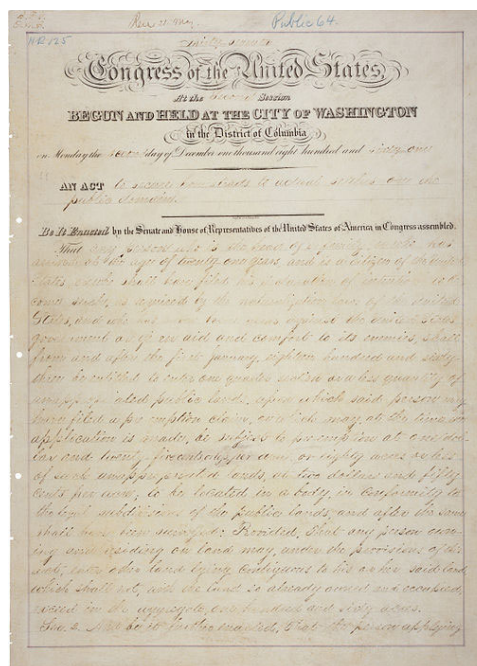 Public 64.
HR 125
Thirty-seventh
Congress of the United States,
At the second Session
BEGUN AND HELD AT THE CITY OF WASHINGTON
in the District of Columbia
on Monday the second day of December one thousand eight hundred and sixty-one
AN ACT to secure homesteads to actual settlers on the
public domain.
Be It Enacted by the Senate and House of Representatives of the United States of America in Congress assembled,
That any person who is the head of a family, or who has
arrived at the age of twenty one years, and is a citizen of the United
States, or who shall have filed his declaration of intention to be-
come such, as required by the naturalization laws of the United
States, and who has never borne arms against the United States
government or given aid and comfort to its enemies, shall
from and after the first January, eighteen hundred and sixty
three be entitled to enter one quarter section or a less quantity of
unappropriated public lands, upon which said person may
have filed a preemption claim, or which may, at the time the
application is made, be subject to preemption at one dol-
lar and twenty five cents, or less, per acre, or eighty acres or less
of such unappropriated lands, at two dollars and fifty
cents per acre, to be located in a body, in conformity to
the legal subdivisions of the public lands, and after the same
shall have been surveyed: Provided, That any person own-
ing and residing on land may, under the provisions of this
act, enter other land lying contiguous to his or her said land,
which shall not, with the land so already owned and occupied,
exceed in the aggregate, one hundred and sixty acres.
Sec. 2. And be it further enacted, That the person applying